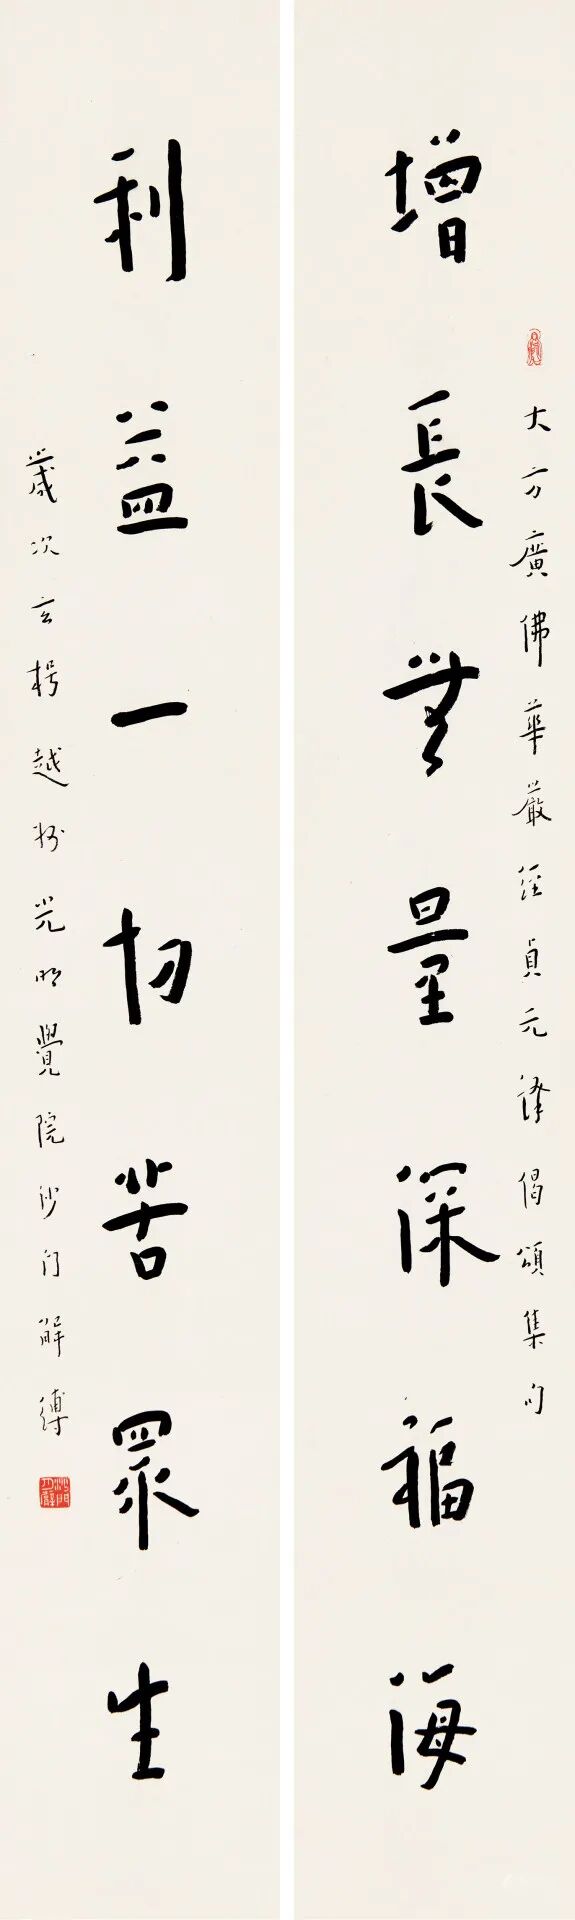 大方廣佛華嚴經貞元譯偈頌集句
增長無量深福海
利益一切苦眾生
歲次玄枵越州光明覺院沙門解縛
沙門月臂